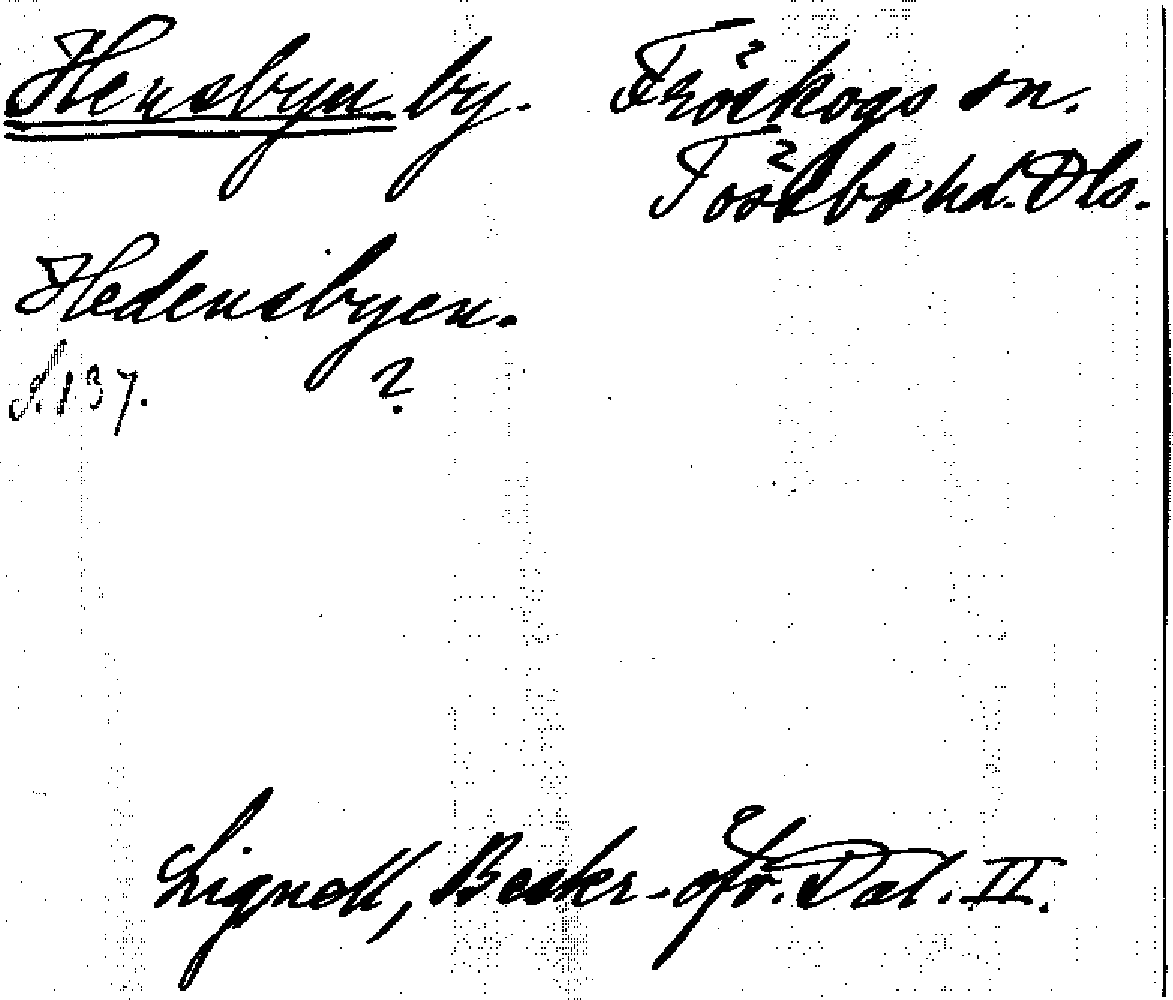 Hensbyn by. Fröskogs sn.
Tössbo hd. Dls.
Hedensbyen.
S. 137. ?
Lignell, Beskr. öfv. Dal. II.